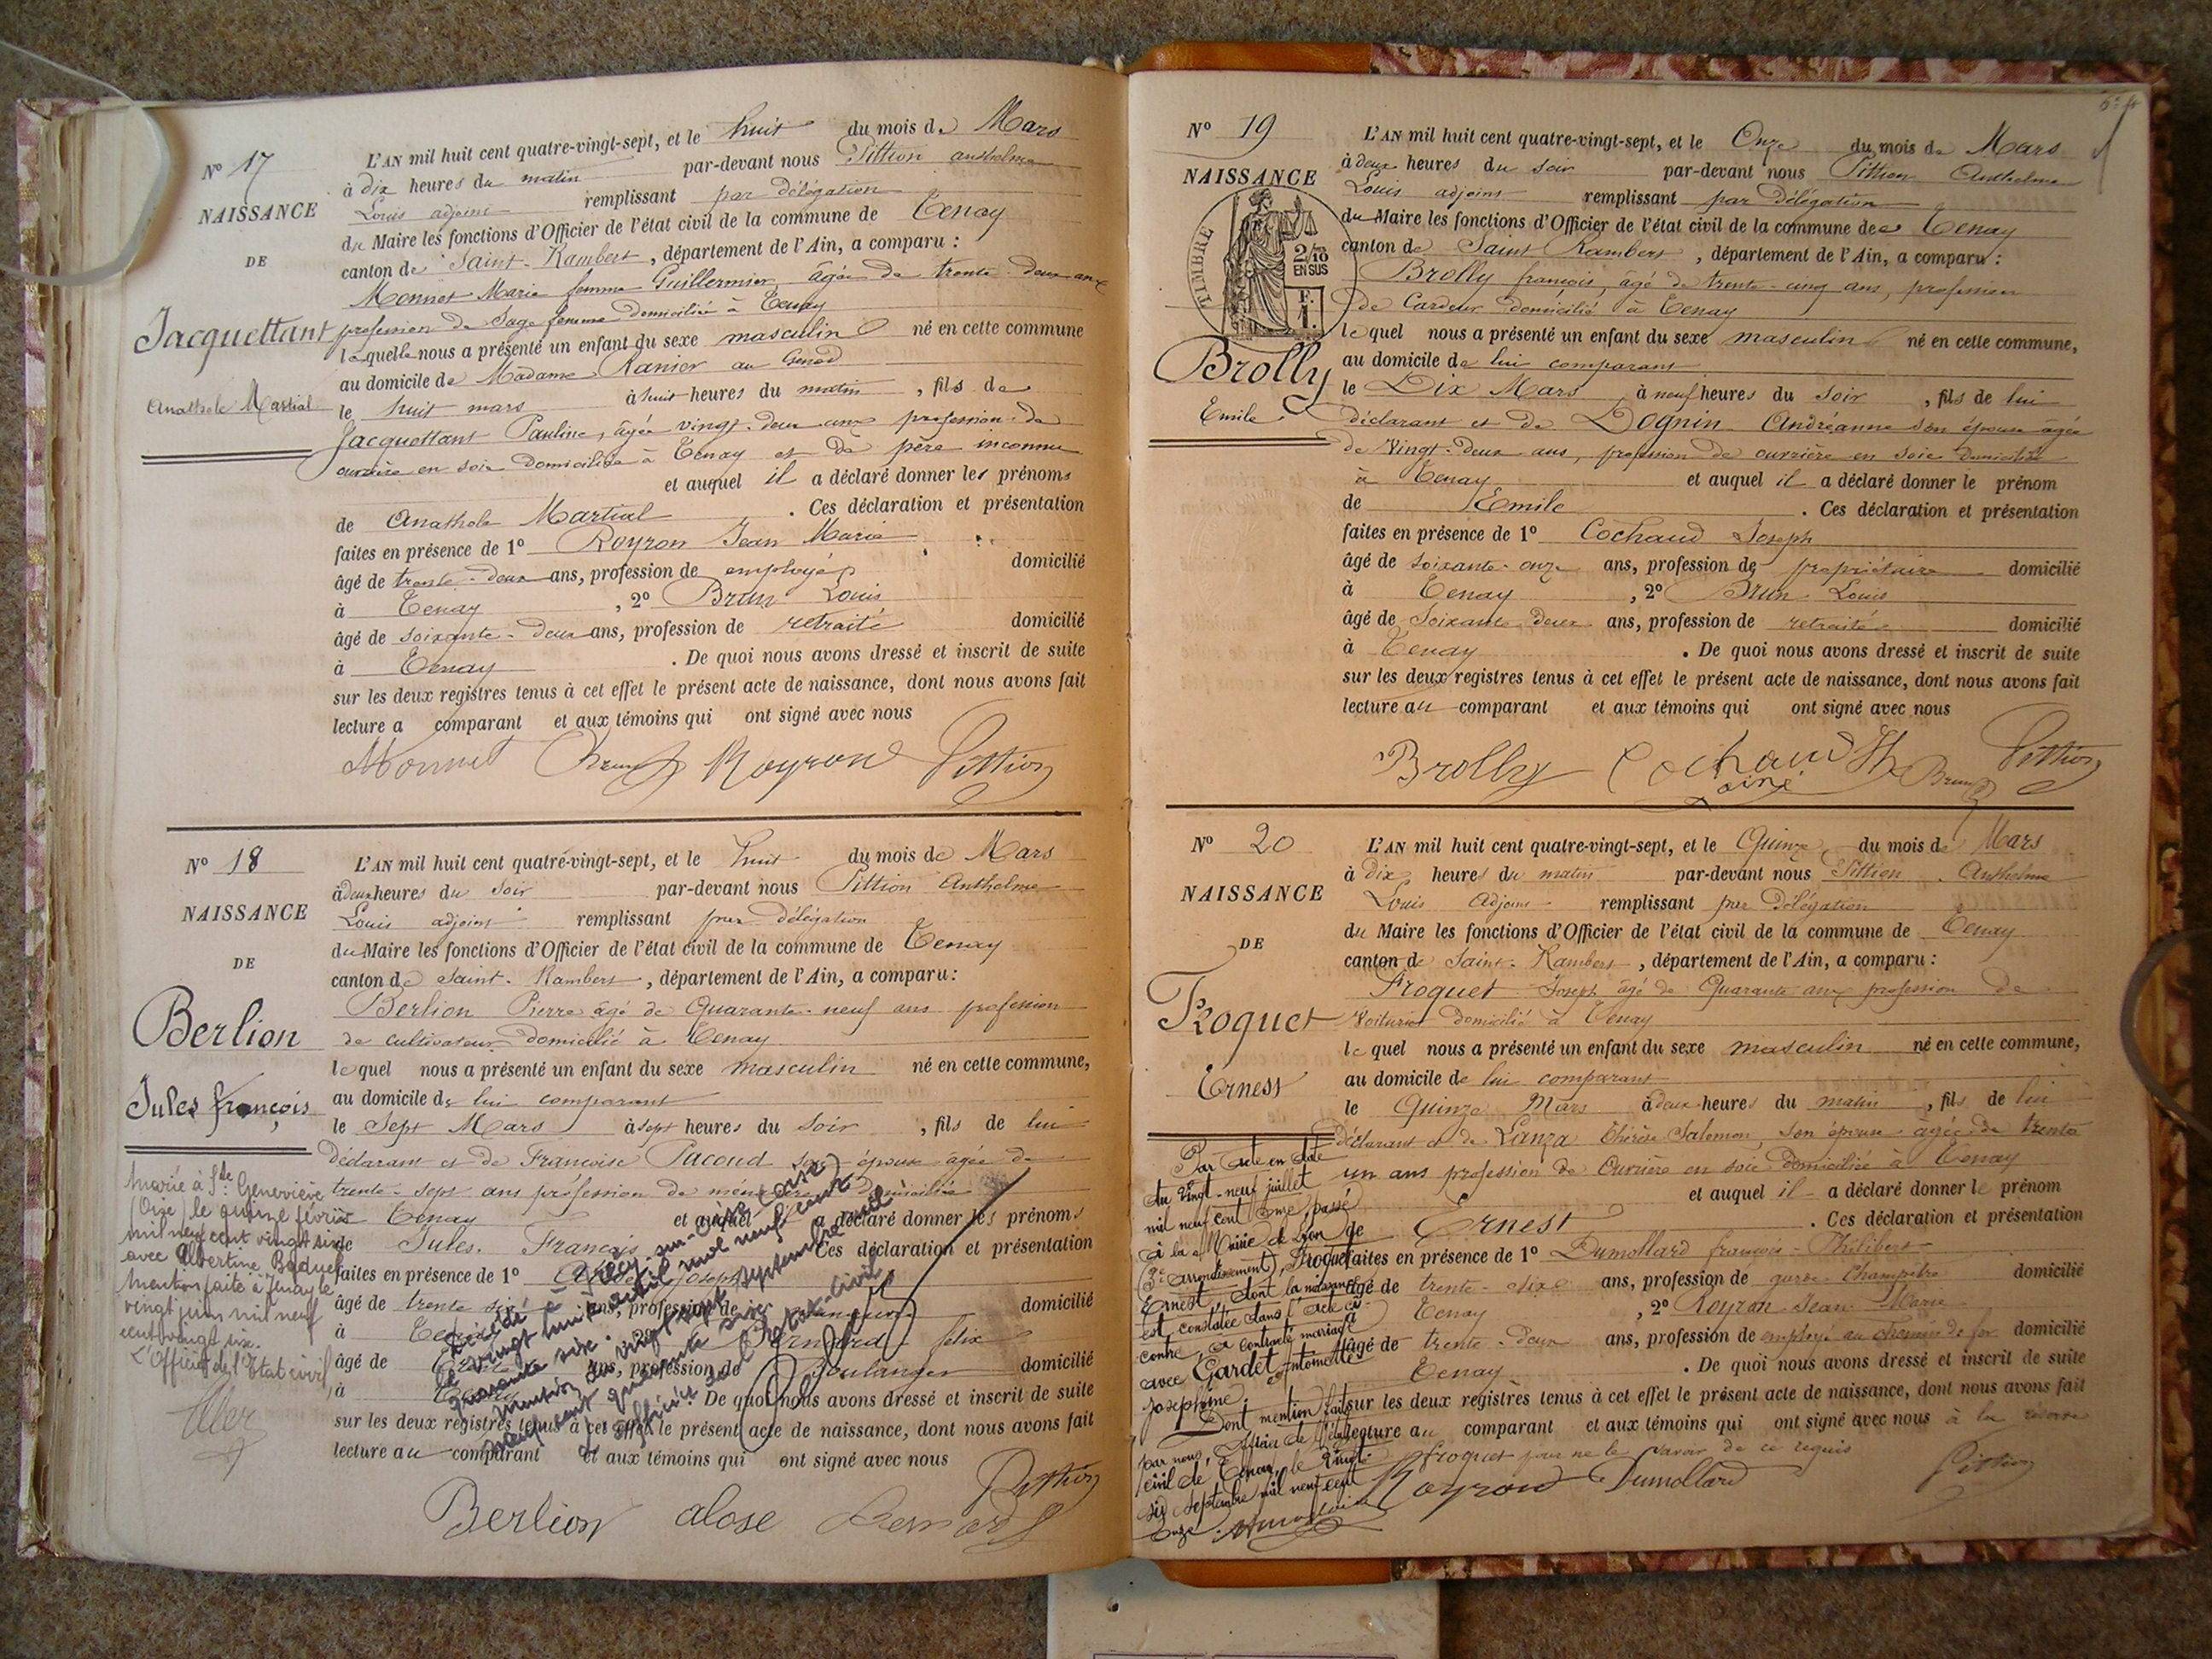 N° 17
NAISSANCE
DE
Jacquettant
Anathole Martial
L'AN mil huit cent quatre-vingt-sept, et le huit du mois de Mars
à dix heures du matin par-devant nous Pittion Anthelme
Louis adjoint remplissant par délégation
du Maire les fonctions d'Officier de l'état civil de la commune de Tenay
canton de Saint-Rambert, département de l'Ain, a comparu :
Monnet Marie femme Guillermier âgée de trente-deux ans
profession de Sage femme domiciliée à Tenay
laquelle nous a présenté un enfant du sexe masculin né en cette commune
au domicile de Madame Ranier au
le huit mars à huit heures du matin, fils de
Jacquettant Pauline, âgée vingt-deux ans profession de
ouvrière en soie domiciliée à Tenay et de père inconnu
et auquel il a déclaré donner les prénoms
de Anathole Martial. Ces déclaration et présentation
faites en présence de 1° Royron Jean Marie
âgé de trente-deux ans, profession de employé domicilié
à Tenay, 2° Brun Louis
âgé de soixante-deux ans, profession de retraité domicilié
à Tenay. De quoi nous avons dressé et inscrit de suite
sur les deux registres tenus à cet effet le présent acte de naissance, dont nous avons fait
lecture a comparant et aux témoins qui ont signé avec nous
Monnet Brun Royron Pittion
N° 18
NAISSANCE
DE
Berlion
Jules françois
L'AN mil huit cent quatre-vingt-sept, et le huit du mois de Mars
à deux heures du soir par-devant nous Pittion Anthelme
Louis adjoint remplissant par délégation
du Maire les fonctions d'Officier de l'état civil de la commune de Tenay
canton de Saint-Rambert, département de l'Ain, a comparu :
Berlion Pierre âgé de Quarante-neuf ans profession
de cultivateur domicilié à Tenay
lequel nous a présenté un enfant du sexe masculin né en cette commune,
au domicile de lui comparant
le Sept Mars à sept heures du soir, fils de lui
Déclarant et de Françoise Pacoud son épouse âgée de
trente-sept ans profession de ménagère domiciliée
à Tenay et auquel il a déclaré donner les prénoms
de Jules François. Ces déclaration et présentation
faites en présence de 1° Joseph
âgé de trente six ans, profession de domicilié
à Tenay 2° Bernard felix
âgé de ans, profession de Boulanger domicilié
à Tenay. De quoi nous avons dressé et inscrit de suite
sur les deux registres tenus à cet effet le présent acte de naissance, dont nous avons fait
lecture au comparant et aux témoins qui ont signé avec nous
Berlion alose Bernard Pittion
Marié à Ste Geneviève
(Oise) le quinze février
mil neuf cent vingt six
avec Albertine
Mention faite à Tenay le
vingt juin mil neuf
cent vingt six.
L'Officier de l'Etat civil
Décédé à Précy-sur-Oise (Oise)
le vingt huit avril mil neuf cent
quarante six.
Mention du vingt sept septembre mil
neuf cent quarante six.
L'officier de l'état civil,
N° 19
NAISSANCE
TIMBRE
2/10
EN SUS
F.
1.
Brolly
Emile
L'AN mil huit cent quatre-vingt-sept, et le Onze du mois de Mars
à deux heures du soir par-devant nous Pittion Anthelme
Louis adjoint remplissant par délégation
du Maire les fonctions d'Officier de l'état civil de la commune de Tenay
canton de Saint Rambert, département de l'Ain, a comparu :
Brolly françois, âgé de trente-cinq ans, profession
de Cardeur domicilié à Tenay
lequel nous a présenté un enfant du sexe masculin né en cette commune,
au domicile de lui comparant
le Dix Mars à neuf heures du soir, fils de lui
déclarant et de Dognin Andréanne son épouse agée
de Vingt-deux ans, profession de ouvrière en soie domiciliée
à Tenay et auquel il a déclaré donner le prénom
de Emile. Ces déclaration et présentation
faites en présence de 1° Cochaud Joseph
âgé de soixante-onze ans, profession de propriétaire domicilié
à Tenay, 2° Brun Louis
âgé de Soixante deux ans, profession de retraité domicilié
à Tenay. De quoi nous avons dressé et inscrit de suite
sur les deux registres tenus à cet effet le présent acte de naissance, dont nous avons fait
lecture au comparant et aux témoins qui ont signé avec nous
Brolly Cochaud Brun Pittion
ainé
N° 20
NAISSANCE
DE
Froquet
Ernest
L'AN mil huit cent quatre-vingt-sept, et le Quinze du mois de Mars
à dix heures du matin par-devant nous Pittion Anthelme
Louis Adjoint remplissant par délégation
du Maire les fonctions d'Officier de l'état civil de la commune de Tenay
canton de Saint-Rambert, département de l'Ain, a comparu :
Froquet Joseph âgé de Quarante ans profession de
Voiturier domicilié à Tenay
lequel nous a présenté un enfant du sexe masculin né en cette commune,
au domicile de lui comparant
le Quinze Mars à deux heures du matin, fils de lui
déclarant et de Lanza Thérèse Salomon, son épouse agée de trente
un ans profession de Ouvrière en soie domiciliée à Tenay
et auquel il a déclaré donner le prénom
de Ernest. Ces déclaration et présentation
faites en présence de 1° Dumollard françois-Philibert
âgé de trente-six ans, profession de garde-Champêtre domicilié
à Tenay, 2° Royron Jean-Marie
âgé de trente-deux ans, profession de employé au chemin de fer domicilié
à Tenay. De quoi nous avons dressé et inscrit de suite
sur les deux registres tenus à cet effet le présent acte de naissance, dont nous avons fait
lecture au comparant et aux témoins qui ont signé avec nous à la réserve
froquet pour ne le savoir de ce requis
Royron Dumollard Pittion
Par acte en date
du Vingt-neuf juillet
mil neuf cent onze, passé
à la Mairie de Lyon
(3e arrondissement), Froquet
Ernest, dont la naissance
est constatée dans l'acte ci-
contre, a contracté mariage
avec Gardet Antoinette
Joséphine.
Dont mention faite
par nous, officier de l'état
civil de Tenay, le vingt-
six septembre mil neuf cent
onze.